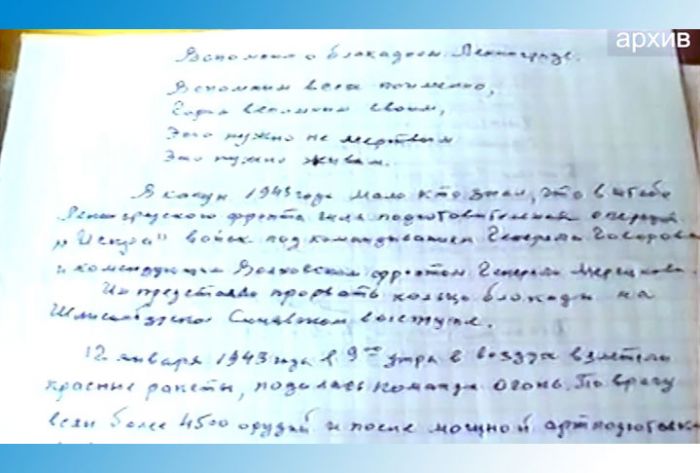 архив
Вспомним о блокадном Ленинграде.
Вспомним всех поимённо,
Горем вспомним своим,
Это нужно не мертвым
Это нужно живым.
В канун 1943 года мало кто знал, что в штабе
Ленинградского фронта шла подготовительная операция
"Искра" войск под командыванием Генерала Говорова
и командующим Волховским фронтом Генерала Мерецкова
Им предстояло прорвать кольцо блокады на
выступе.
12 января 1943 года в 9⁰⁰ утра в воздух взлетели
красные ракеты, подалась команда огонь. По врагу
более 4500 орудий и после мощной артподготовки